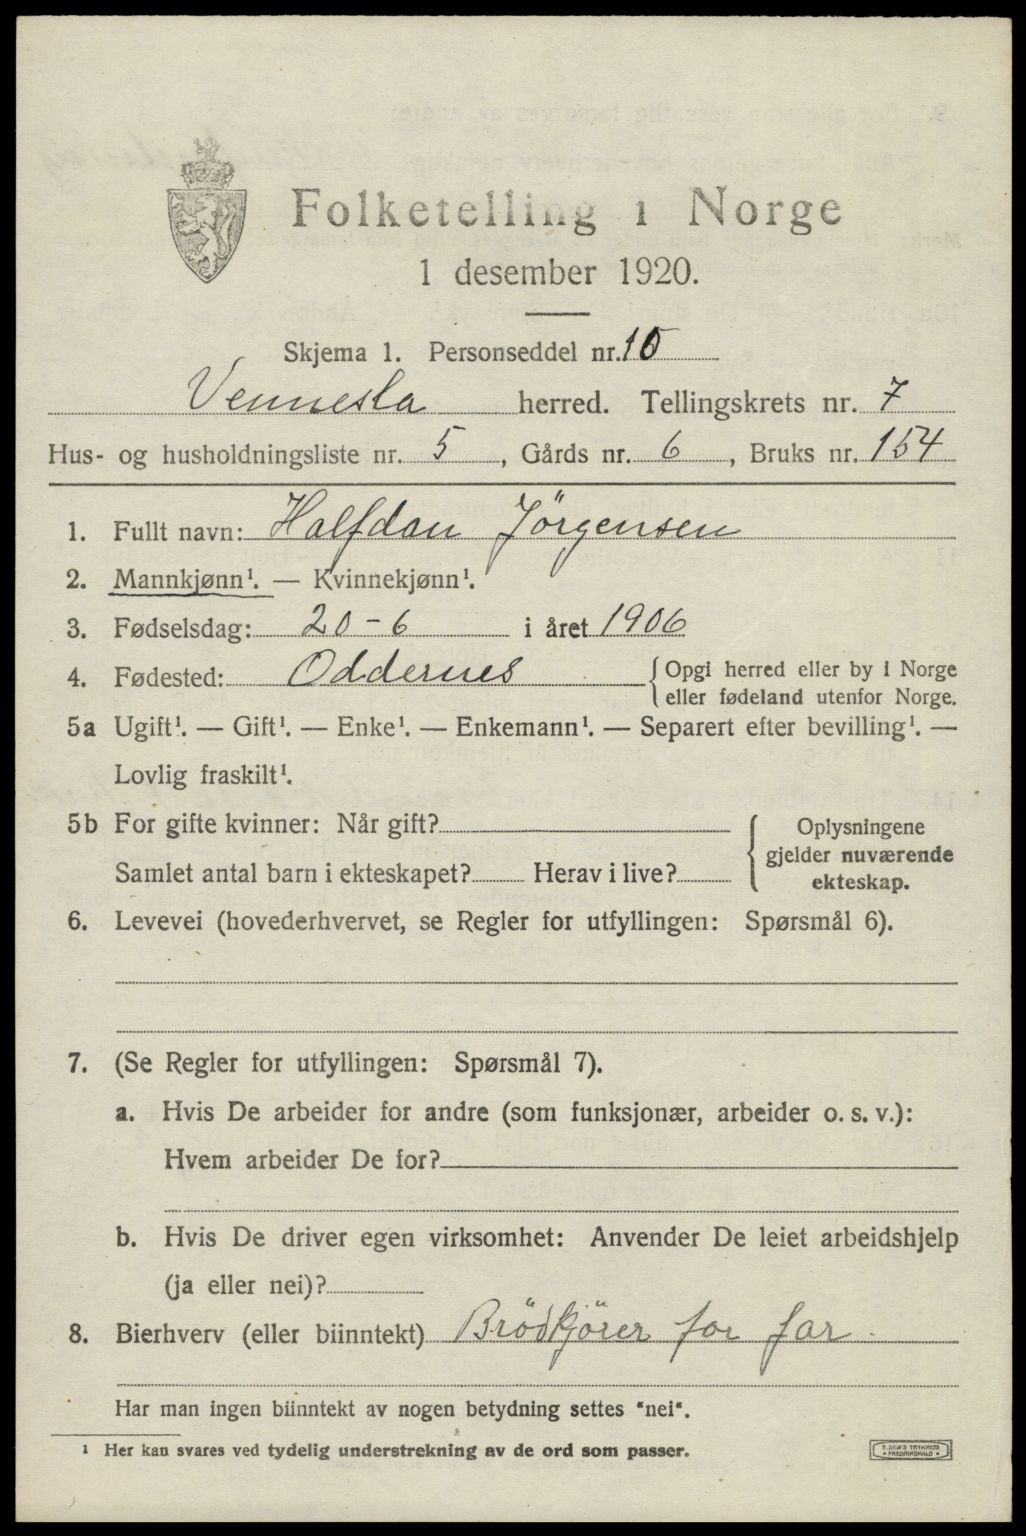 Folketelling i Norge
1 desember 1920.
Skjema 1. Personseddel nr. 10
Vennesla herred. Tellingskrets nr. 7
Hus- og husholdningsliste nr. 5, Gårds nr. 6, Bruks nr. 154
1. Fullt navn: Halfdan Jörgensen
2. Mannkjønn¹. — Kvinnekjønn¹.
3. Fødselsdag: 20-6 i året 1906
4. Fødested: Oddernes { Opgi herred eller by i Norge
eller fødeland utenfor Norge.
5a Ugift¹. — Gift¹. — Enke¹. — Enkemann¹. — Separert efter bevilling¹. —
Lovlig fraskilt¹.
5b For gifte kvinner: Når gift?
Samlet antal barn i ekteskapet? Herav i live?
Oplysningene
gjelder nuværende
ekteskap.
6. Levevei (hovederhvervet, se Regler for utfyllingen: Spørsmål 6).
7. (Se Regler for utfyllingen: Spørsmål 7).
a. Hvis De arbeider for andre (som funksjonær, arbeider o. s. v.):
Hvem arbeider De for?
b. Hvis De driver egen virksomhet: Anvender De leiet arbeidshjelp
(ja eller nei)?
8. Bierhverv (eller biinntekt) Brödkjörer for far
Har man ingen biinntekt av nogen betydning settes "nei".
¹ Her kan svares ved tydelig understrekning av de ord som passer.
E. SEM'S TRYKKERI
• FREDRIKSHALD •